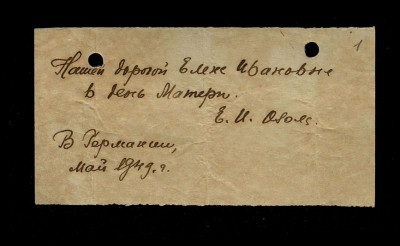 1
Нашей дорогой Елене Ивановне
в день Матери.
Е. И.
В Германии,
май 1949 г.